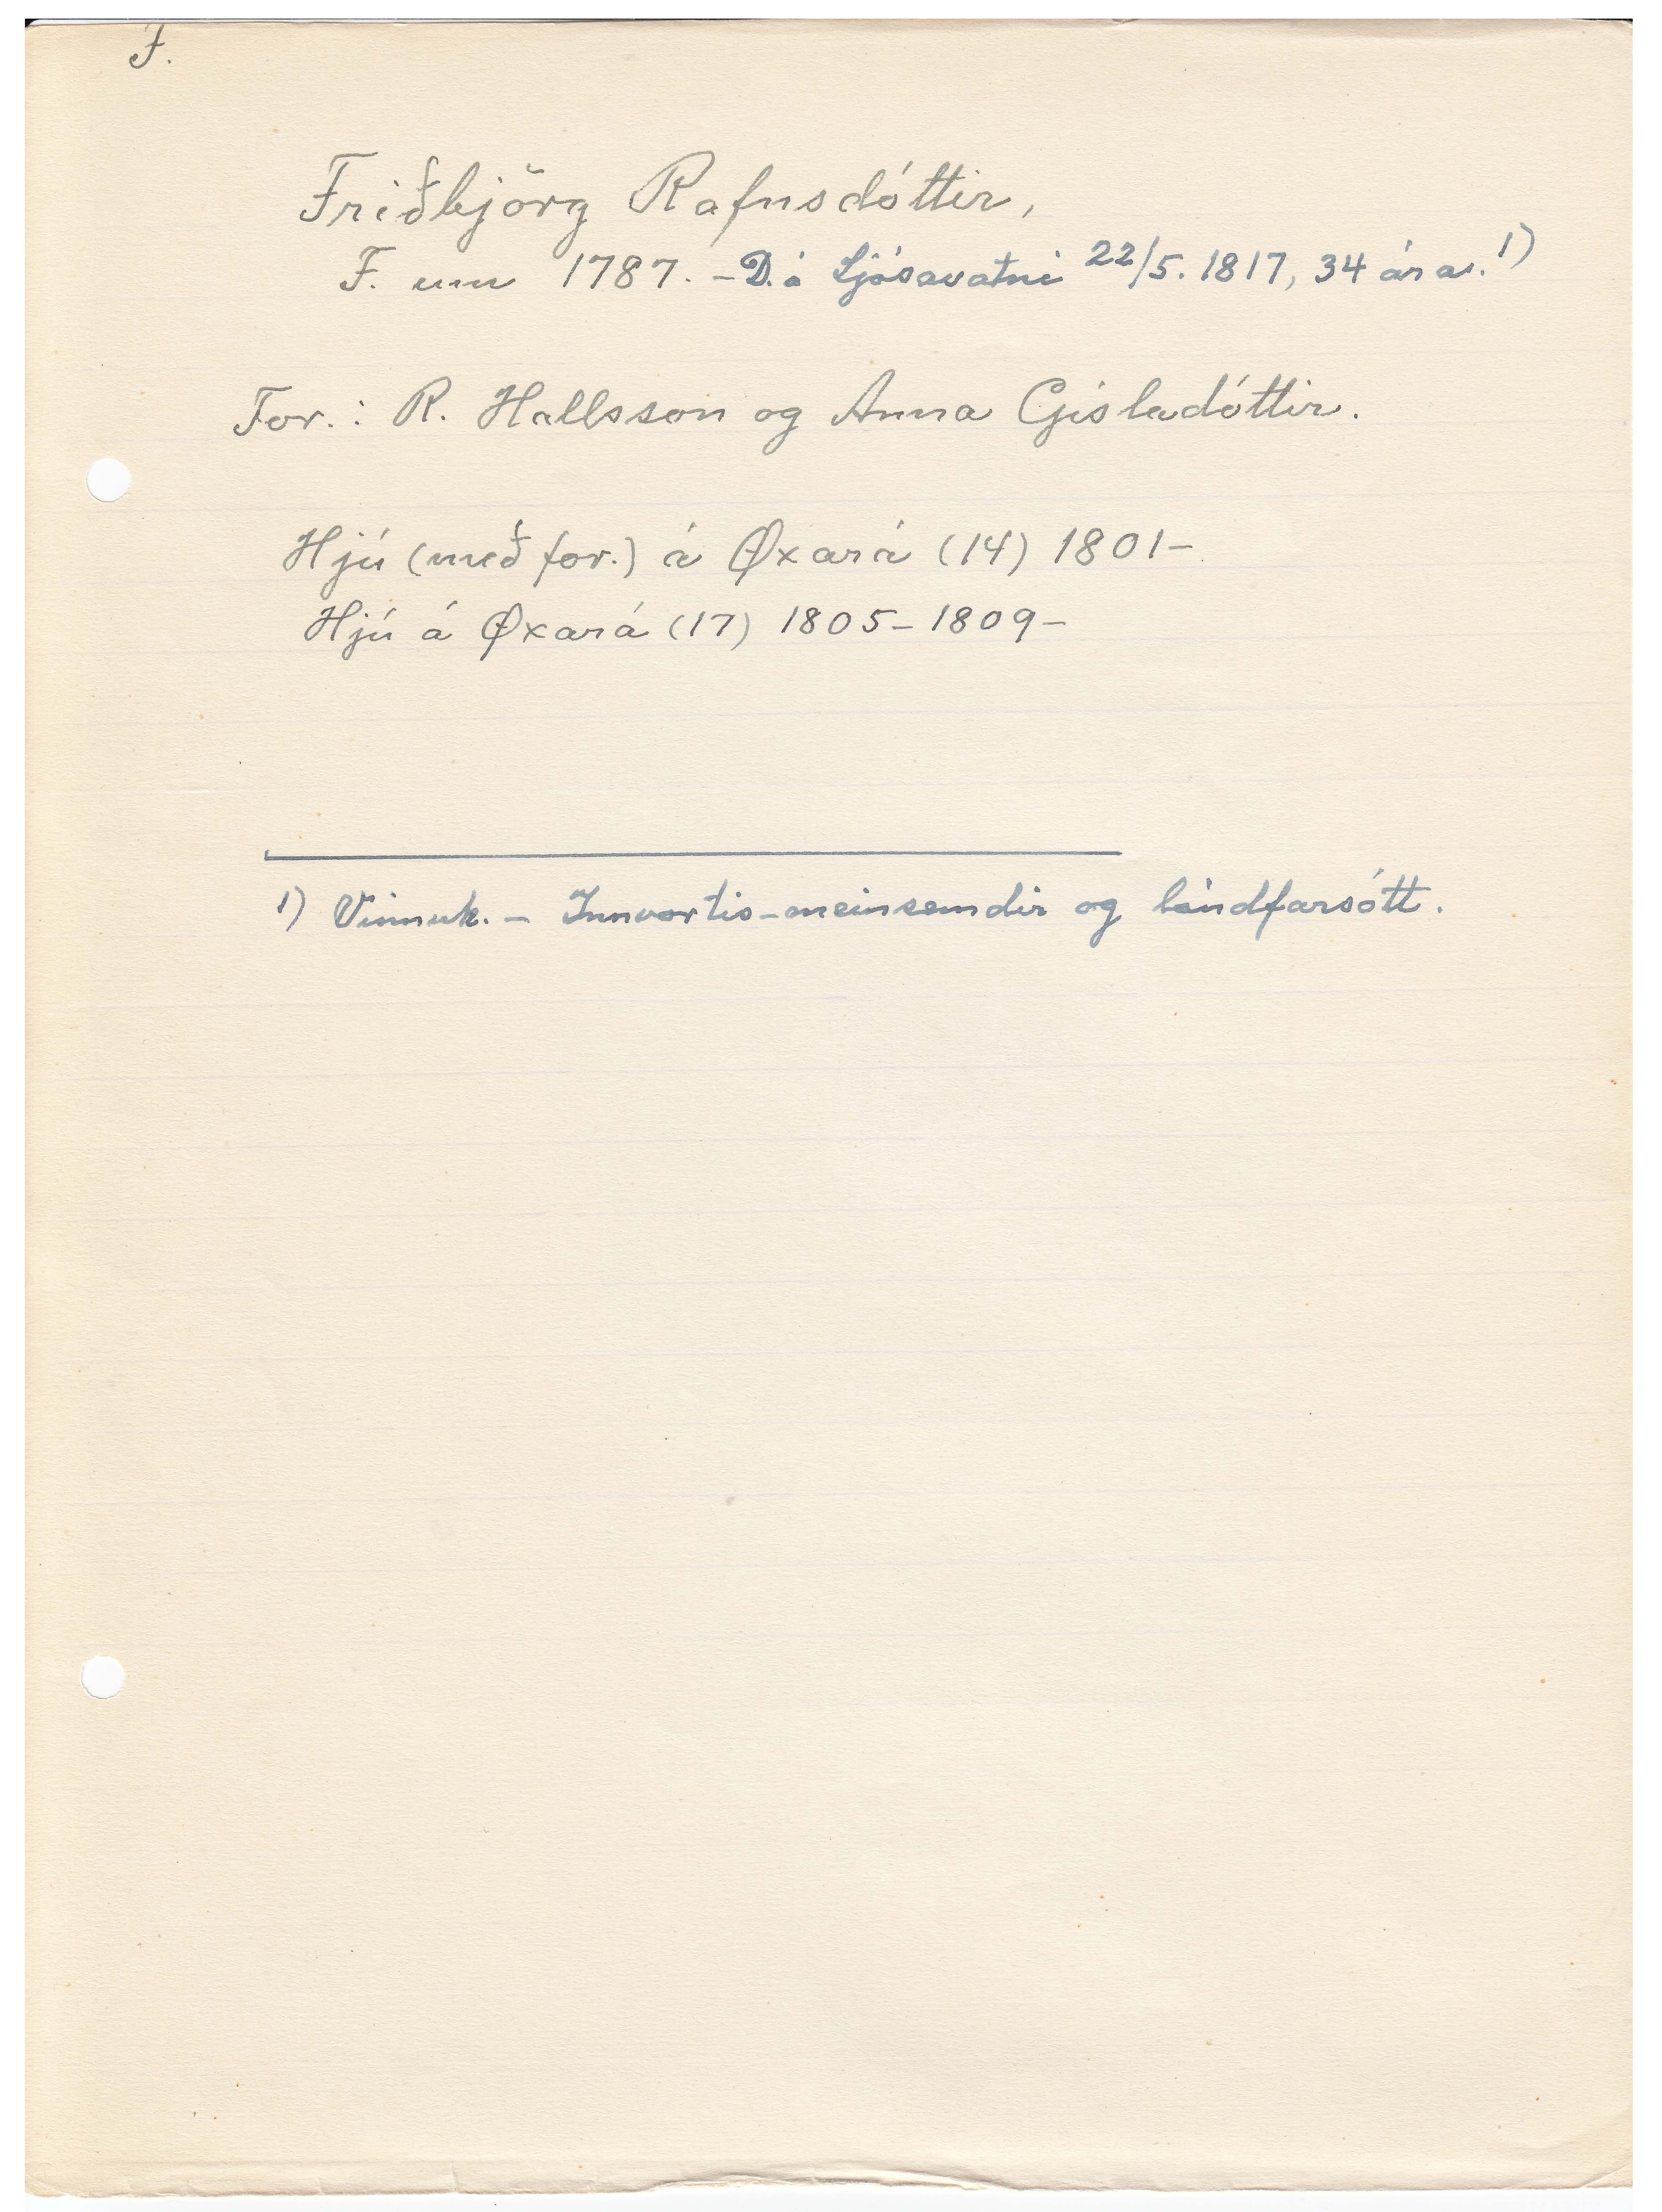 F.
Friðbjörg Rafnsdóttir,
F. um 1787. – D. á Ljósavatni 22/5. 1817, 34 ára. 1)
For.: R. Hallsson og Anna Gísladóttir.
Hjú (með for.) á Øxará (14) 1801–
Hjú á Øxará (17) 1805–1809–
1) Vinnuk. – Innvortis-meinsemdir og landfarsótt.